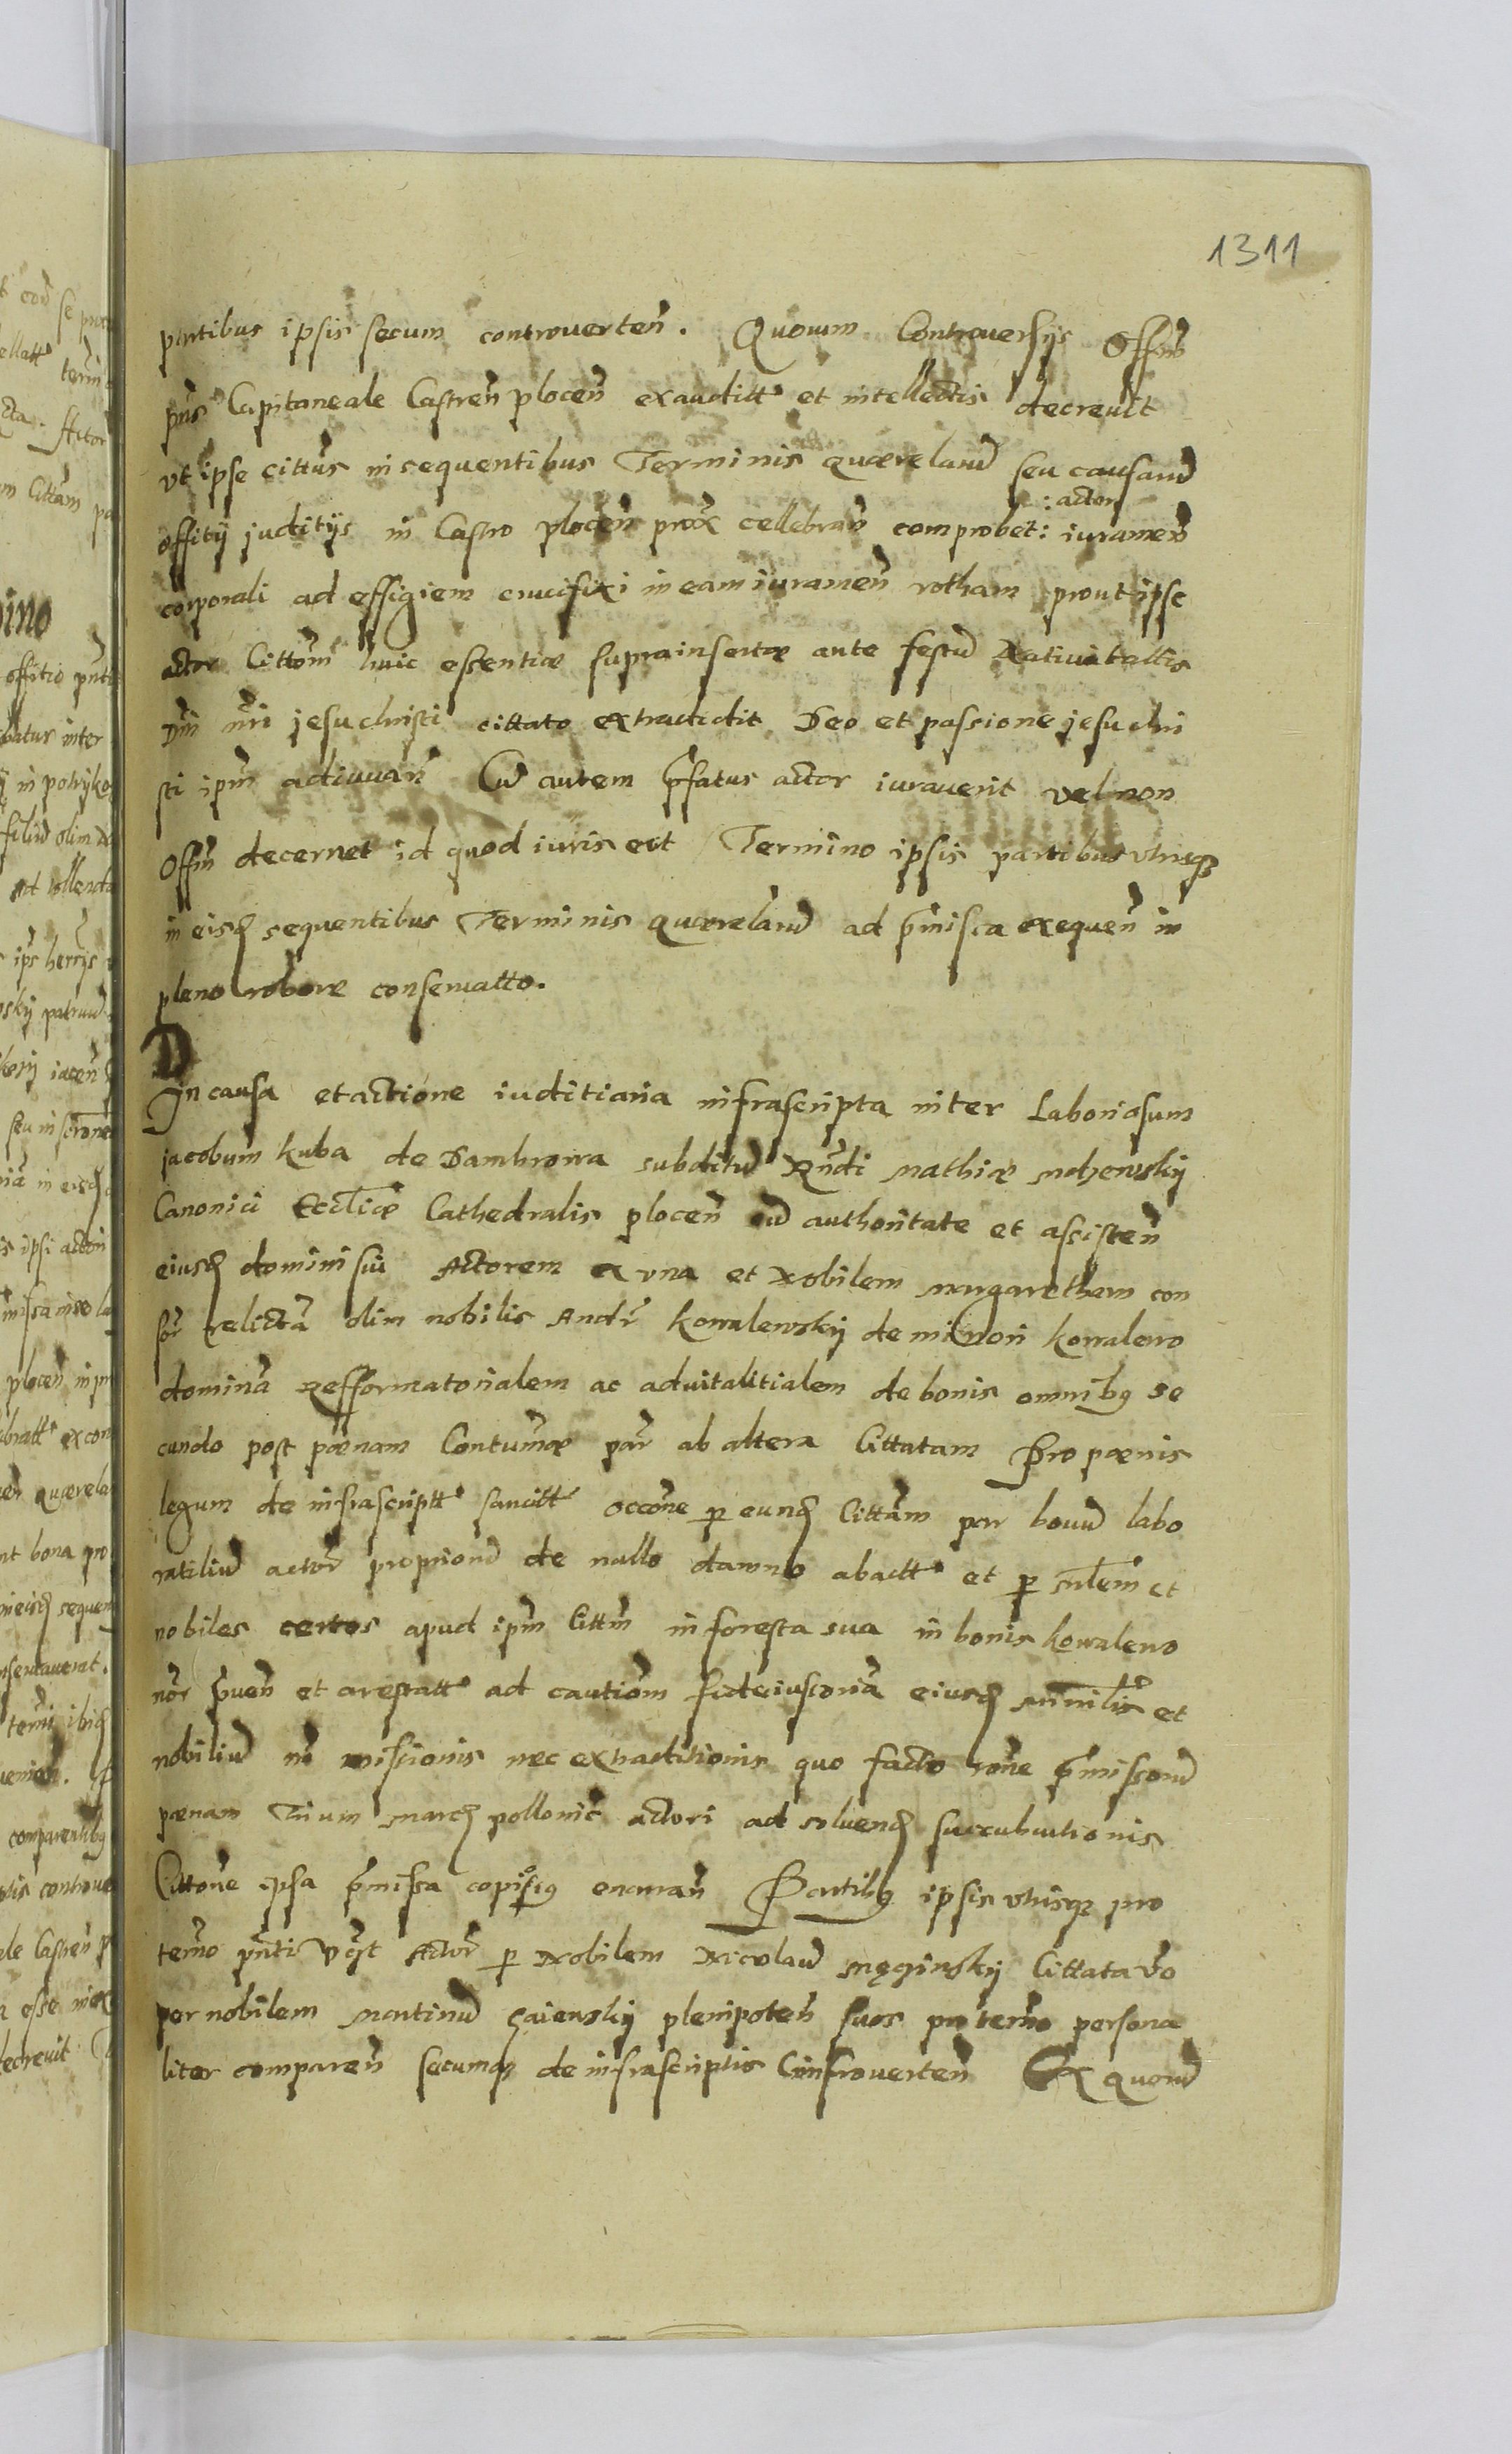 1311
partibus ipsis secum controverten̄. Quorum Controversijs Offm̄
pn̄s Capitaneale Castren̄ plocen̄ exauditt et intellectis decreuit
vt ipse cittus in sequentibus Terminis quaereland seu causand
: actor
offitij juditijs in Castro plocen̄ prox̄ cellebran̄ comprobet: iuramen̄
corporali ad effigiem crucifixi in eam iuramen̄ rotham prout ipse
actor Cittom̄ huic essentiae suprainsertae ante festū Natiuitattis
Dn̄i nr̄i jesu christi cittato extradidit Deo et passione jesu chri
sti ipm̄ adiuuan̄ Cū autem p̄fatus actor iurauerit vel non
Offm̄ decernet id quod iuris erit Termino ipsis partibus vtrisq3
in eisd sequentibus Terminis quaereland ad p̄missa exequen̄ in
pleno robore conseruatto.
D
In causa et actione iuditiaria infrascripta inter Laboriosum
jacobum kuba de Dambrowa subditū Rn̄di Mathiae
Canonici Eccl̄iae Cathedralis plocen̄ cū authoritate et assisten̄
eiusd domini sui Actorem ex vna et Nobilem margaretham con
sor̄ relictā olim nobilis Andr̄ kowalewskij de minori kowalewo
dominā Refformatorialem ac aduitalitialem de bonis omnibq se
cundo post poenam Contumac̄ par̄ ab altera Cittatam Pro poenis
legum de infrascriptt sancitt occōne p eund Cittām par bouū labo
ratiliū actor̄ propriorū de nullo damno abactt et p et
nobiles certos apud ipm̄ Cittm̄ in foresta sua in bonis kowalewo
nor̄ et arestatt ad cautiōm fideiussoriā eiusd et
nobiliū nō missionis nec extraditionis quo facto rōne p̄missorū
poenam Trium marcd pollonic̄ actori ad soluend succubuitionis
Cittōne ipsa p̄missa copiosiq enarran̄ Partibq ipsis vtrisq3 pro
term̄o pn̄ti Actor̄ p Nobilem Nicolaū Cittata vō
per nobilem martinū plenipoten̄ suos pro term̄o persona
liter comparen̄ secumq3 de infrascriptis Controuerten̄ Ex quorū